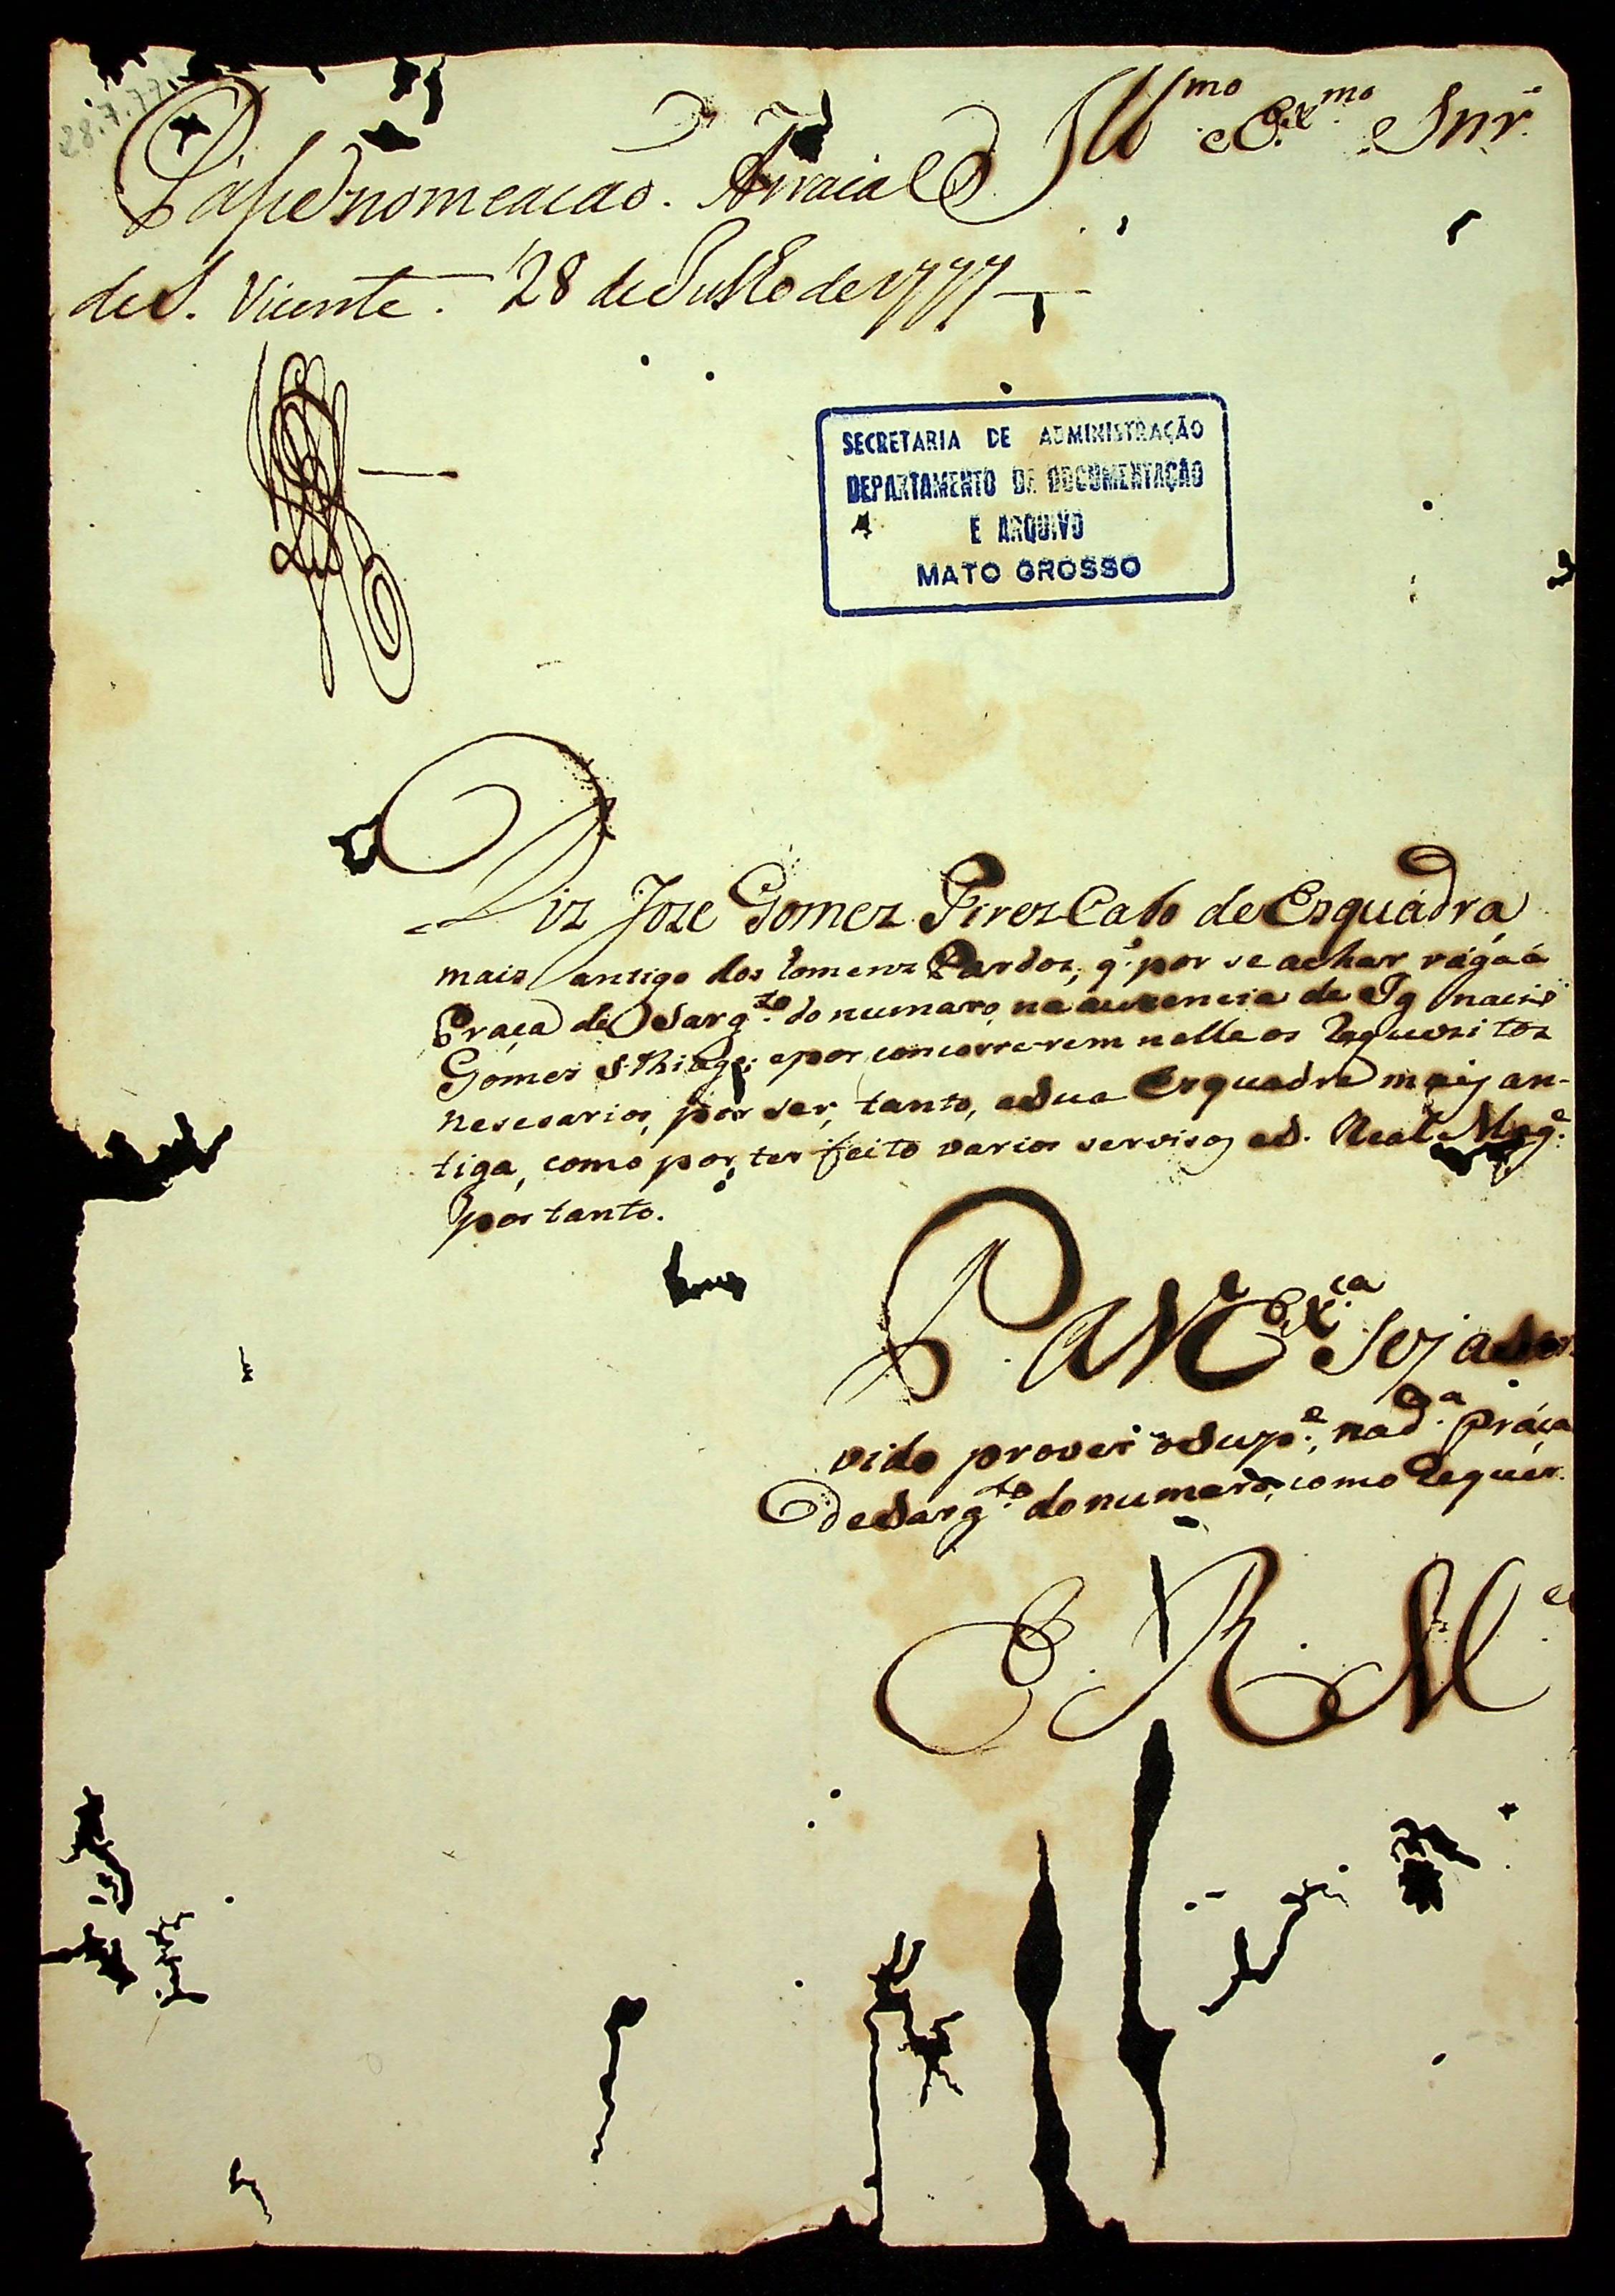 28.7.77
Ill.mo e Ex.mo Snr.
Passe nomeacao. Arraial
de S. Vicente. 28 de Julho de 1777
SECRETARIA DE ADMINISTRAÇÃO
DEPARTAMENTO DE DOCUMENTAÇÃO
E ARQUIVO
MATO GROSSO
Diz Joze Gomez Pirez Cabo de Esquádra
maiz antigo dos homenz Pardoz, q.' por se achar vága á
Praça de Sarg.to do numaro, na auzencia de Ignacio
Gomez S.Thiago; e por concorrerem nelle os Requezitoz
nesesarios, por ser, tanto, a Sua Esquadra maiz an-
tiga, como por ter feito varios servisoz a S. Real Mag.e
por tanto.
P. a V Ex.ca Seja Ser
vido prover o Sup.e, na d.a Práça
de Sarg.to do numaro, como Requer.
E. R. M.ce